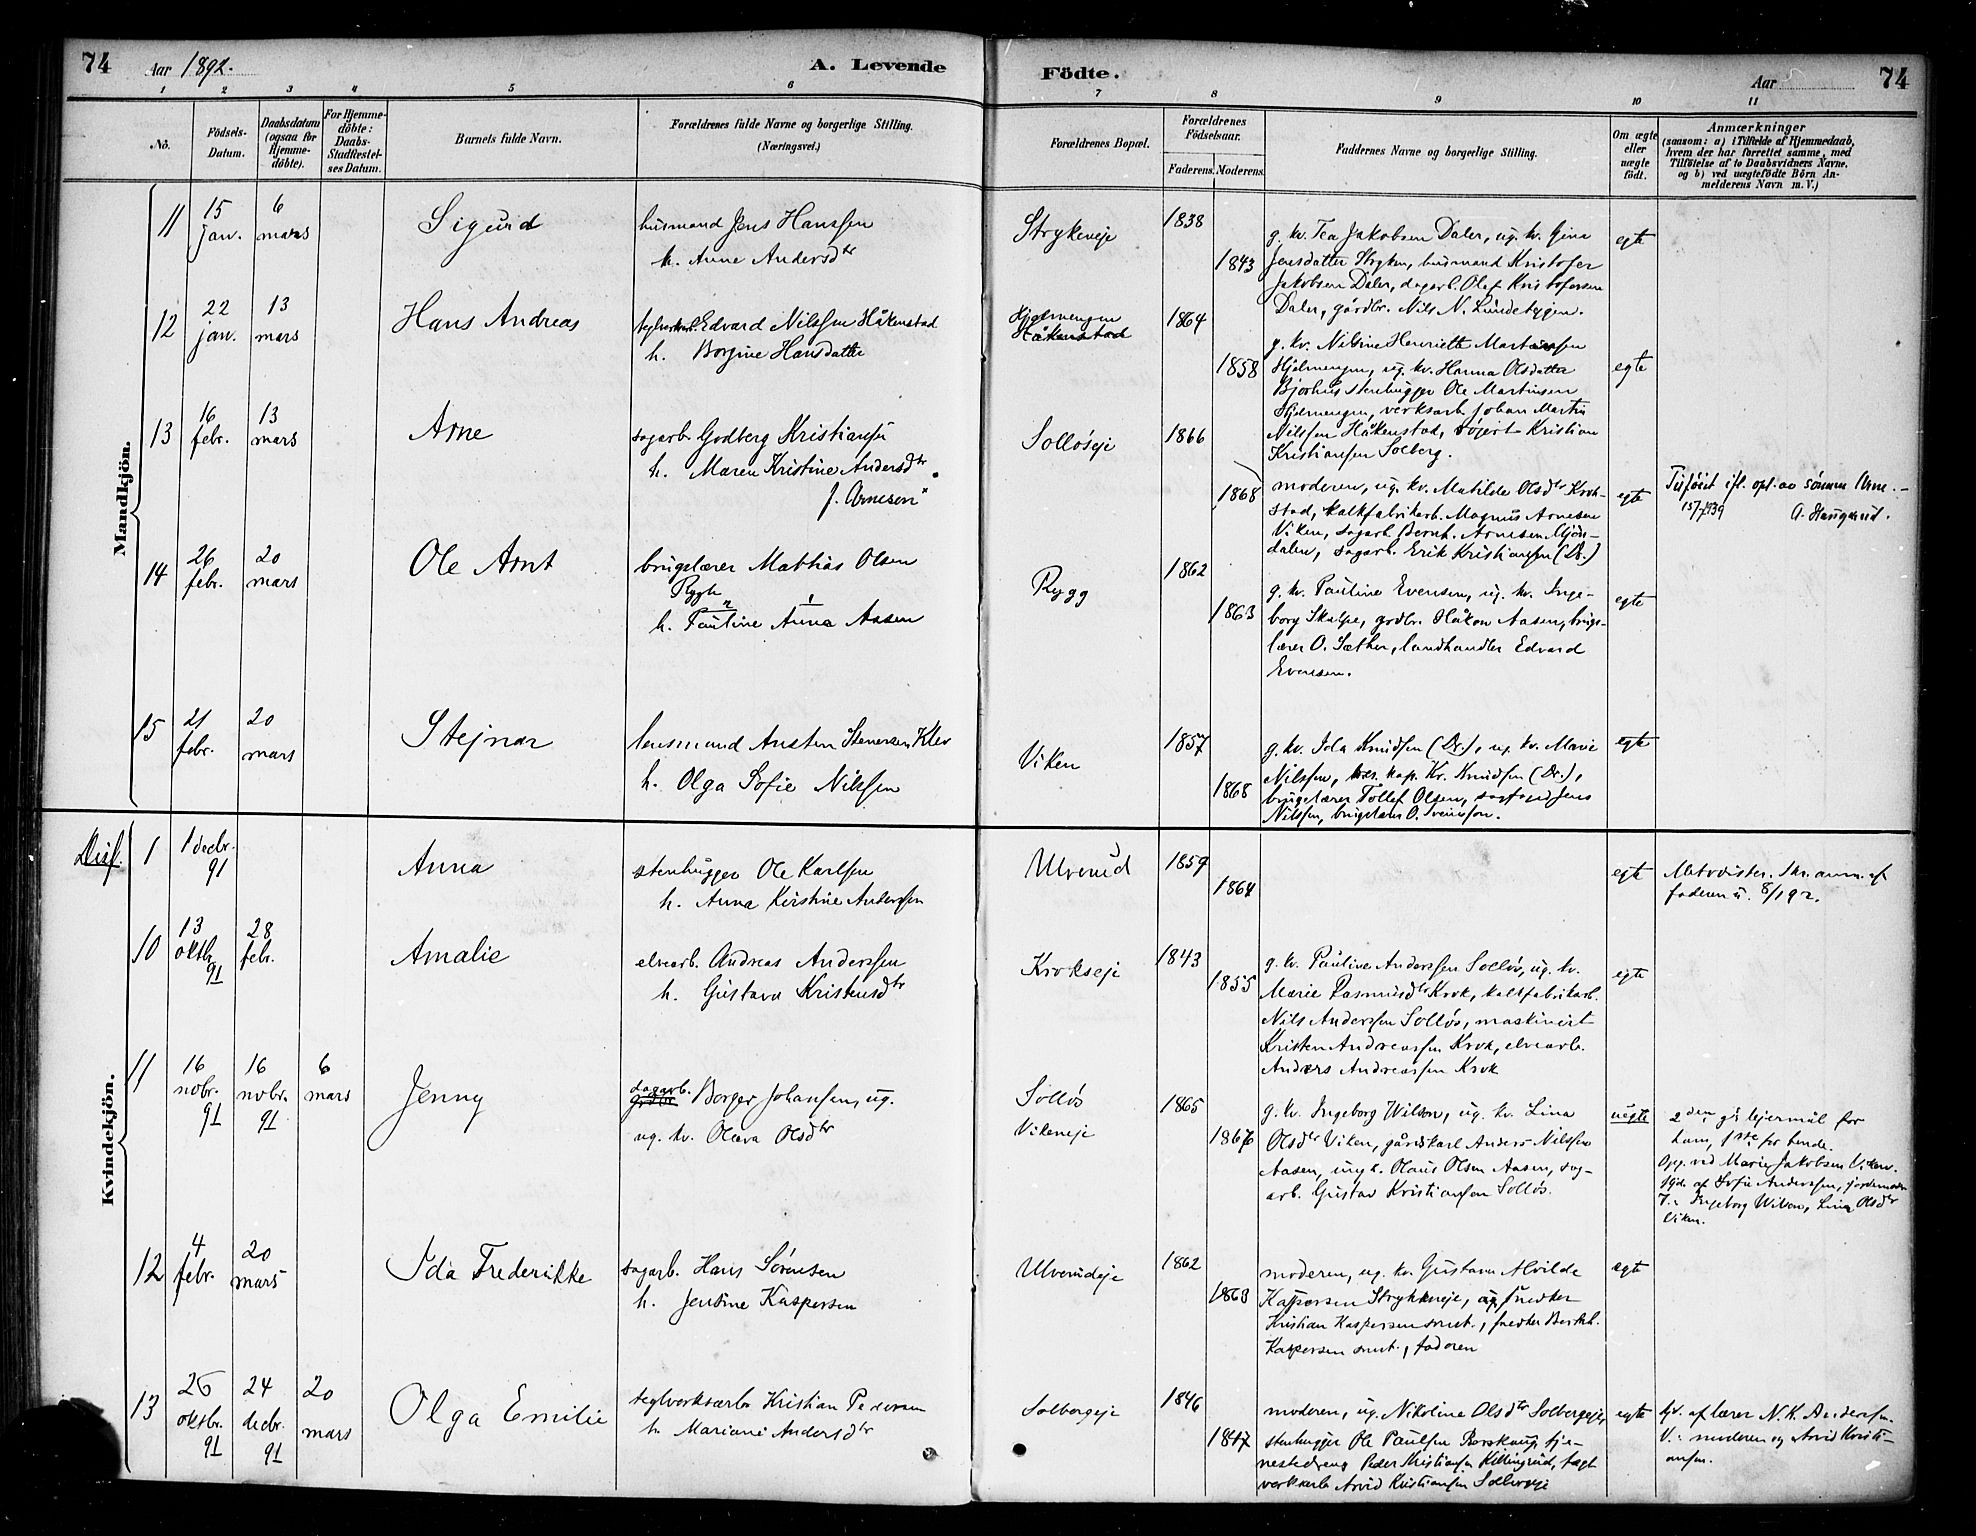 74
Aar 1892.
A. Levende
Födte.
Aar
74
1 2 3 4 5 6 7 8 9 10 11
No.
Födsels-
Datum.
Daabsdatum
(ogsaa for
Hjemme-
döbte).
For Hjemme-
döbte:
Daabs-
Stadfæstel-
ses Datum.
Barnets fulde Navn.
Forældrenes fulde Navne og borgerlige Stilling.
(Næringsvei.)
Forældrenes Bopæl.
Forældrenes
Födselsaar.
Faderens. Moderens.
Faddernes Navne og borgerlige Stilling.
Om ægte
eller
uægte
födt.
Anmærkninger
(saasom: a) i Tilfælde af Hjemmedaab,
hvem der har forrettet samme, med
Tilföielse af to Daabsvidners Navne.
og b) ved uægtefödte Börn An-
melderens Navn m. V.)
Mandkjön.
11
15
jan.
6
mars
Sigurd
husmand Jens Hanssen
h. Anne Andersdtr
Strykeneje
1838
1843
g. kv. Tea Jakobsen Daler, ug. kv. Gina
Jensdatter Stryken, husmand Kristofer
Jakobsen Daler, dagarb. Olaf Kristofersen
Daler, gårdbr. Nils N. Lindebygen.
egte
12
22
jan.
13
mars
Hans Andreas
Edvard Nilssen Håkenstad
h. Borgine Hansdatter
Hjelmengen
Håkenstad
1864
1858
g. kv. Nilsine Henriette Martinsen
Hjelmengen, ug. kv. Hanna Olsdatter
Bjørhus stenhugger Ole Martinsen
Hjelmengen, verksarb. Johan Martin
Nilssen Håkenstad, Kristian
Kristiansen Solberg.
egte
13
16
febr.
13
mars
Arne
sagarb. Godberg Kristiansen
h. Maren Kristine Andersdtr
f. Arnesen x
Solløseje
1866
1868
moderen, ug. kv. Matilde Olsdtr Krok-
stad, kalkfabrikarb. Magnus Arnesen
Viken, sagarb. Bernh. Arnesen Mjøn-
dalen, sagarb. Erik Kristiansen (Dr.)
egte
Tilføiet ifl. opl. av sønnen Arne. -
15/7 1939 A. Haugerud.
14
26
febr.
20
mars
Ole Arnt
brugslærer Mathias Olsen
Rygh
2 1
h. Pauline Anna Aasen
Rygg
1862
1863
g. kv. Pauline Evensen, ug. kv. Inge-
borg Skalpe, grdbr. Håkon Aasen, brugs-
lærer O. Sæther, landhandler Edvard
Evensen.
egte
15
21
febr.
20
mars
Stejnar
lensmand Austen Stenersen Klev
h. Olga Sofie Nilssen
Viken
1857
1868
g. kv. Ida Knudsen (Dr.), ug. kv. Marie
Nilssen, res. kap. Kr. Knudsen (Dr.),
brugslærer Tollef Olsen, Jens
Nilssen, brugslærer O. Svensson.
egte
Kvindekjön.
Diss.
1
1 decbr.
91
Anna
stenhugger Ole Karlsen
h. Anna Kirstine Anderssen
Ulverud
1859
1864
egte
Metodister. Skr. anm. af
faderen 8/1 92.
10
13
oktbr.
91
28
febr.
Amalie
elvearb. Andreas Anderssen
h. Gustava Kristensdtr
Krokseje
1843
1855
g. kv. Pauline Anderssen Solløs, ug. kv.
Marie Rasmusdtr Krok, kalkfabrikarb.
Nils Anderssen Solløs, maskinist
Kristen Andreassen Krok, elvearb.
Anders Andreassen Krok
egte
11
16
nobr.
91
16
nobr.
91
6
mars
Jenny
dagarb. Borger Johansen, ug.
ug. kv. Oleva Olsdtr
Solløs
Vikeneje
1865
1867
g. kv. Ingeborg Wilson, ug. kv. Lina
Olsdtr Viken, gårdskarl Anders Nilssen
Aasen, ungk. Olaus Olsen Aasen, sag-
arb. Gustav Kristiansen Solløs.
uegte
2den gs lejermål for
ham, 1ste for hende.
Opg. ved Marie Jakobsen Viken.
Hjd. af Sofie Anderssen, jordemoder
V.: Ingeborg Wilson, Lina Olsdtr
Viken.
12
4
febr.
20
mars
Ida Frederikke
sagarb. Hans Sørensen
h. Jensine Kaspersen
Ulverudeje
1862
1863
moderen, ug. kv. Gustava Alvilde
Kaspersen Strykeneje, snedker
Kristian Kaspersen smst., snedker Berth.
Kaspersen smst., faderen
egte
13
26
oktbr.
91
24
decbr.
91
20
mars
Olga Emilie
teglverksarb. Kristian Pedersen
h. Mariane Andersdtr
Solbergeje
1846
1847
moderen, ug. Nikoline Olsdtr Solbergeje,
stenhugger Ole Paulsen Borskaug, tje-
nestedreng Peder Kristiansen Killingrud, tegl-
verksarb. Arvid Kristiansen Solbergeje
egte
Hjd. af lærer N. K. Anderssen.
V.: moderen og Arvid Kristi-
ansen.